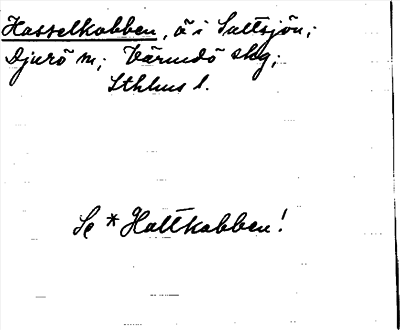 Hasselkobben, ö i Saltsjön;
Djurö m; Värmdö skg;
Sthlms l.
Se *Hattkobben!